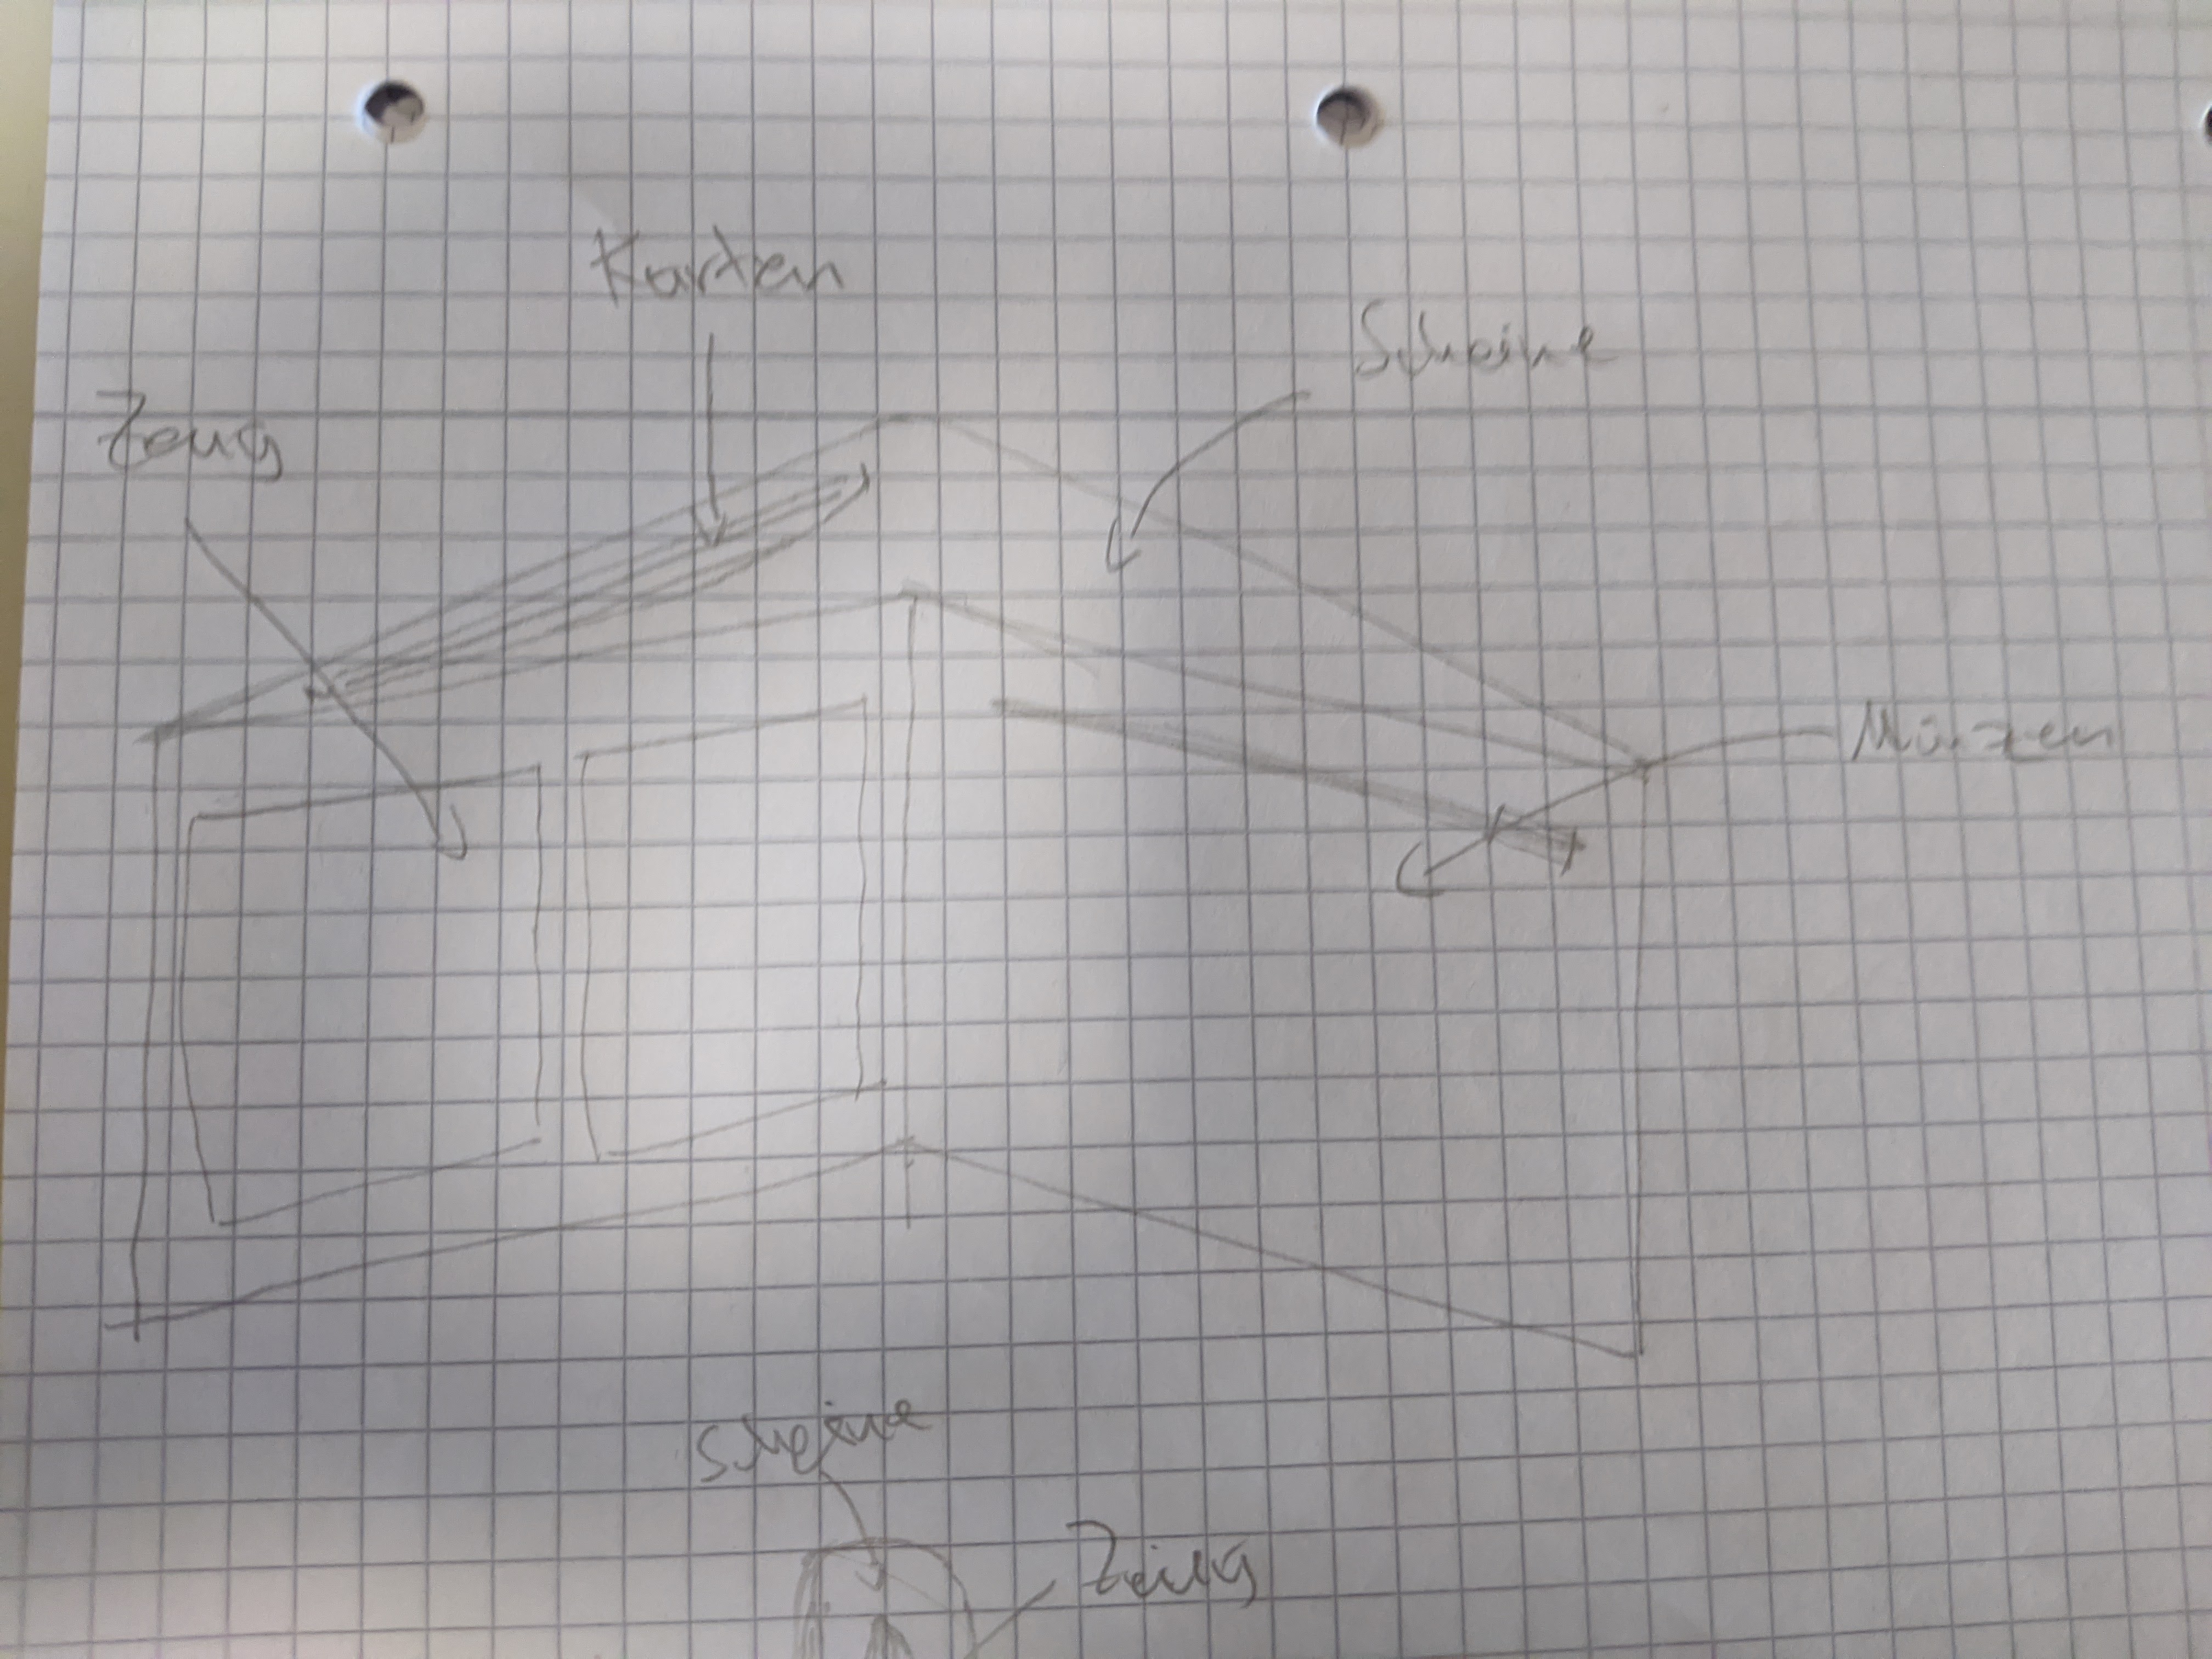 Karten
Scheine
Zeug
Münzen
Scheine
Zeug